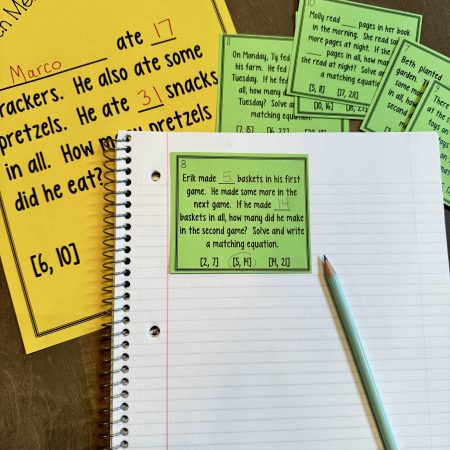 ch Me
Marco ate 17
rackers. He also ate some
pretzels. He ate 31 snacks
in all. How many pretzels
did he eat?
[6, 10]
11
On Monday, Ty fed
his farm. He fed
Tuesday. If he fed
all, how many
Tuesday? Solve
matching
[7, 15] [16, 22]
10
Molly read ___ pages in her book
in the morning. She read som
more pages at night. If she
___ pages in all, how many
she read at night? Solve a
a matching equation.
[5, 11] [17, 28]
[10, 16] [18,
7
Beth planted
garden.
some more
in all, how
second
9
There
at the
toys on
toys
on
8
Erik made 5 baskets in his first
game. He made some more in the
next game. If he made 14
baskets in all, how many did he make
in the second game? Solve and write
a matching equation.
[2, 7] [5, 14] [14, 21]